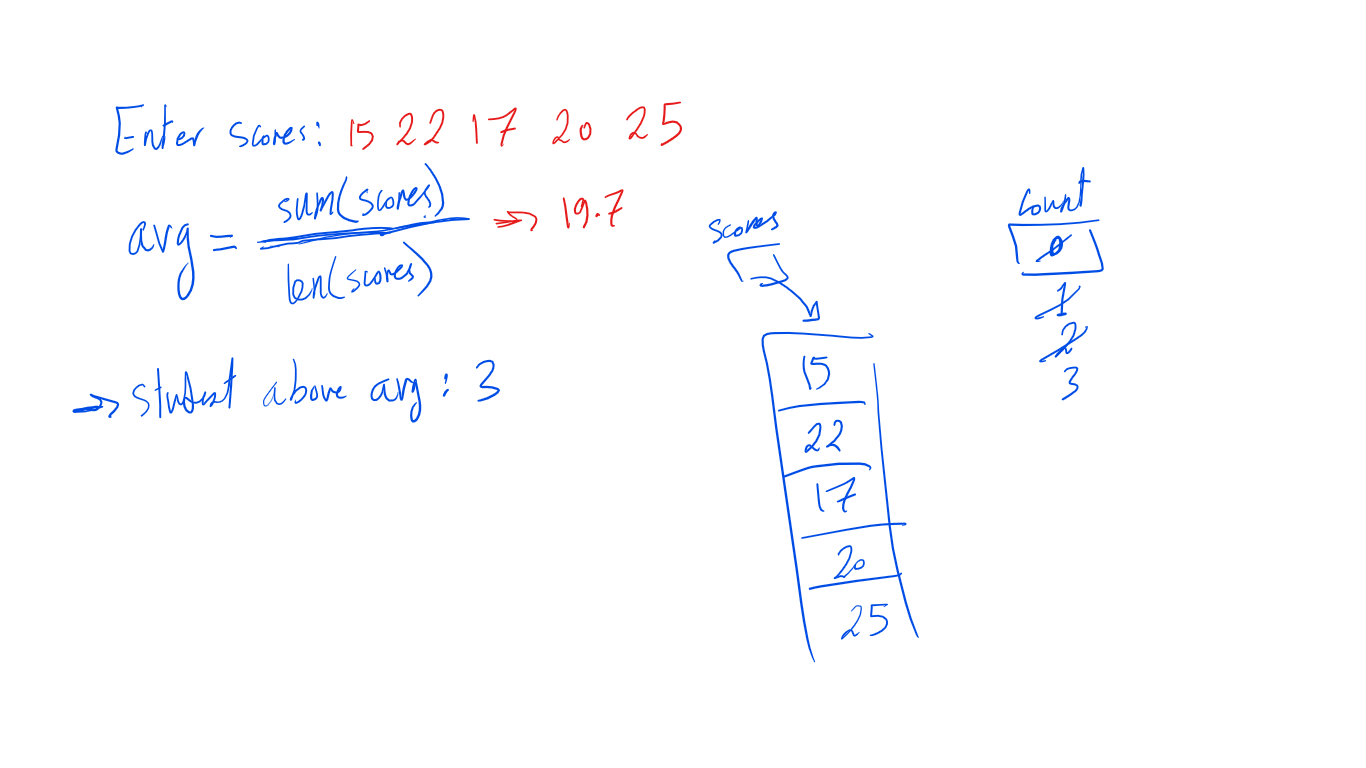 Enter scores: 15 22 17 20 25
avg = sum(scores) => 19.7
len(scores)
=> student above avg : 3
scores
15
22
17
20
25
count
0
1
2
3